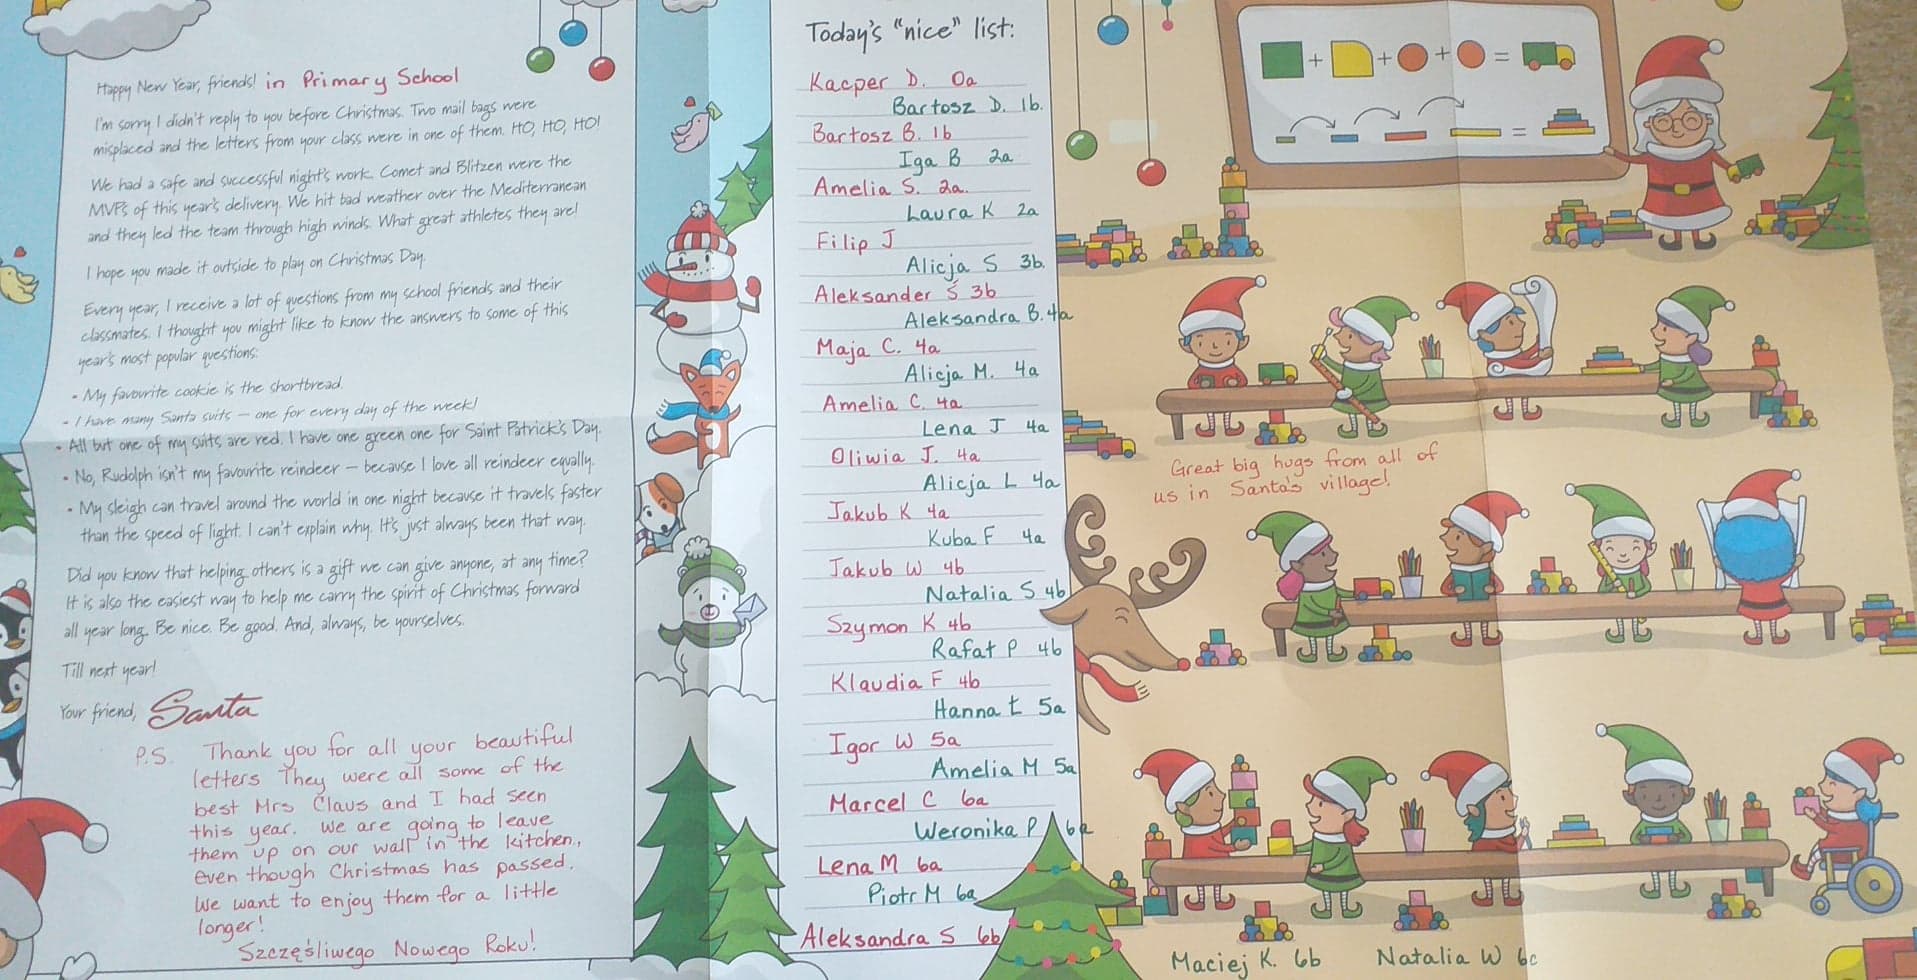 Happy New Year, friends! in Primary School
I'm sorry I didn't reply to you before Christmas. Two mail bags were
misplaced and the letters from your class were in one of them. HO, HO, HO!
We had a safe and successful night's work. Comet and Blitzen were the
MVPs of this year's delivery. We hit bad weather over the Mediterranean
and they led the team through high winds. What great athletes they are!
I hope you made it outside to play on Christmas Day.
Every year, I receive a lot of questions from my school friends and their
classmates. I thought you might like to know the answers to some of this
year's most popular questions:
• My favourite cookie is the shortbread.
• I have many Santa suits – one for every day of the week!
• All but one of my suits are red. I have one green one for Saint Patrick's Day.
• No, Rudolph isn't my favourite reindeer – because I love all reindeer equally.
• My sleigh can travel around the world in one night because it travels faster
than the speed of light. I can't explain why. It's just always been that way.
Did you know that helping others is a gift we can give anyone, at any time?
It is also the easiest way to help me carry the spirit of Christmas forward
all year long. Be nice. Be good. And, always, be yourselves.
Till next year!
Your friend, Santa
P.S. Thank you for all your beautiful
letters They were all some of the
best Mrs Claus and I had seen
this year. We are going to leave
them up on our wall in the kitchen,
even though Christmas has passed.
We want to enjoy them for a little
longer!
Szczęśliwego Nowego Roku!
Today's "nice" list:
Kacper D. 0a
Bartosz D. 1b.
Bartosz B. 1b
Iga B 2a
Amelia S. 2a.
Laura K 2a
Filip J
Alicja S 3b.
Aleksander Ś 3b
Aleksandra B. 4a
Maja C. 4a
Alicja M. 4a
Amelia C. 4a
Lena J 4a
Oliwia J. 4a
Alicja L 4a
Jakub K 4a
Kuba F 4a
Jakub W 4b
Natalia S 4b
Szymon K 4b
Rafat P 4b
Klaudia F 4b
Hanna Ł 5a
Igor W 5a
Amelia M 5a
Marcel C 6a
Weronika P 6a
Lena M 6a
Piotr M 6a
Aleksandra S 6b
Great big hugs from all of
us in Santa's village!
Maciej K. 6b Natalia W 6c